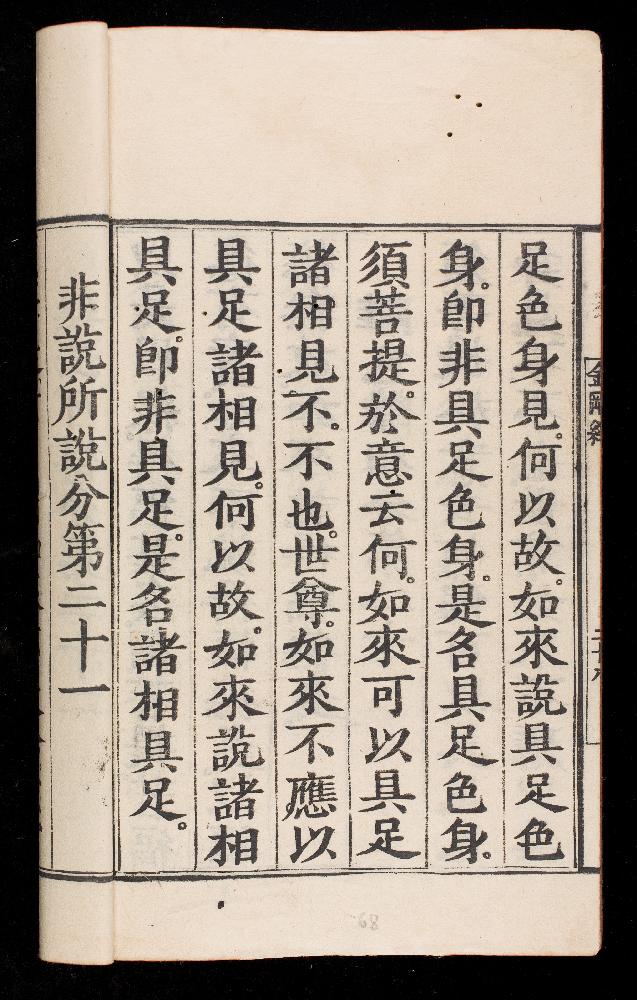 足色身見。何以故。如來說具足色
身。卽非具足色身。是名具足色身。
須菩提。於意云何。如來可以具足
諸相見不。不也。世尊。如來不應以
具足諸相見。何以故。如來說諸相
具足。卽非具足。是名諸相具足。
非說所說分第二十一
金剛經
68